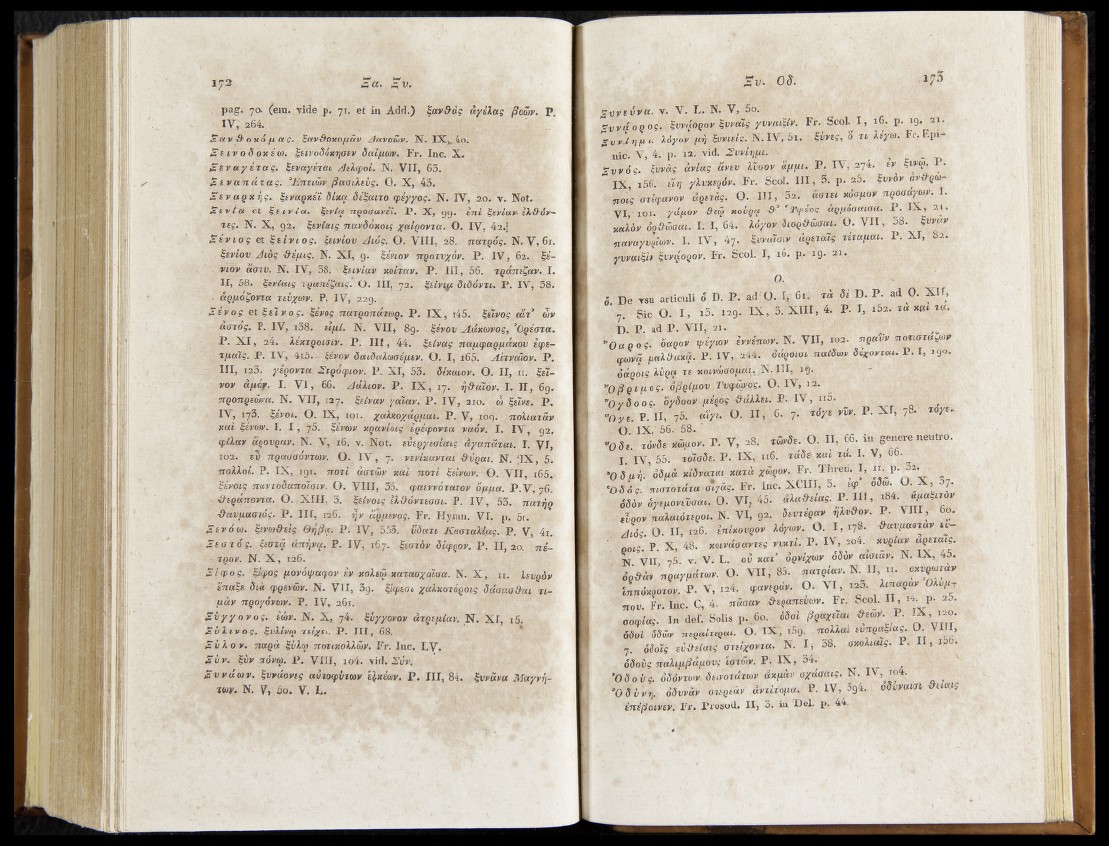 172 Ξα. Ξυ.
pag. 70. (em. vide p. 71. et in Add.) ξανθὰς ἀγέλας βοῶν. P.
IV, 264.
Ξανθοκόμας. ξανθοκομᾶν Δαναῶν. N. IX, 40.
Ξεινοδοκέω. ξεινοδόκησεν δαίμων. Fr. Inc. X.
Ξεναγέτας. ξεναγέται Δελφοί. N. VII, 63.
Ξεναπάτας. Ἐπειῶν βασιλεύς. O. X, 43.
Ξεναρκής. ξεναρκέϊ δίκᾳ δέξαιτο φέγγος. N. IV, 20. v. Not.
Ξενία et ξεινία. ξενίᾳ προσανεῖ. P. X, 99. ἐπὶ ξενίαν ἐλθόν-
τες. N. X, 92. ξενίαις πανδόκοις χαίροντα. O. IV, 42.
Ξένιος et Ξείνιος. ξεινίου Διός. O. VIII, 28. πατρός. N. V, 61.
ξενίου Διὸς θέμις. N. XI, 9. ξένιον προτυχόν. P. IV, 62. ξέ-
νιον ἄστυ. N. IV, 38. ξεινίαν κοίταν. P. III, 56. τράπεζαν. I.
II, 58. ξενίαις τραπέζαις. O. III, 72. ξείνια διδόντι. P. IV, 58.
ἁρμόζοντα τεύχων. P. IV, 229.
Ξένος et ξεῖνος. ξένος πατροπάτωρ. P. IX, 145. ξεῖνος αἴτ᾽ ὢν
ἀστός. P. IV, 138. εἰμί. N. VII, 89. ξένου Λάκωνος, Ὀρέστα.
P. XI, 24. λέκτροισιν. P. III, 44. ξείνας παμφαρμάκου ἐφε-
τμαῖς. P. IV, 415. ξένον δαιδαλωσέμεν. O. I, 165. Αἰτναῖον. P.
III, 123. γέροντα Στρόφιον. P. XI, 53. δίκαιον. O. II, 11. ξεῖ-
νον ἁμόν. I. VI, 66. Δάλιον. P. IX, 17. ἠθαῖον. I. II, 69.
προπρεῶνα. N. VII, 127. ξείναν γαῖαν. P. IV, 210. ὦ ξεῖνε. P.
IV, 173. ξένοι. O. IX, 101. χαλκοχάρμαι. P. V, 109. πολιατᾶν
καὶ ξένων. I. I, 75. ξένων κρανίοις ἐρέφοντα ναόν. I. IV, 92.
φίλαν ἄρουραν. N. V, 16. v. Not. εὐεργεσίαις ἀγαπᾶται. I. VI,
102. εὖ πρασσόντων. O. IV, 7. νενίκανται θύραι. N. IX, 5.
πολλοί. P. IX, 191. ποτὶ ἀστῶν καὶ ποτὶ ξείνων. O. VII, 165.
ξένοις παντοδαποῖσιν. O. VIII, 35. φαεννότατον ὄμμα. P. V. 76.
θεράποντα. O. XIII, 3. ξείνοις ἐλθόντεσσι. P. IV, 53. πατὴρ
θαυμαστός. P. III, 126. ἦν ἄρμενος. Fr. Hymn. VI. p. 51.
Ξενόω. ξενωθεὶς Θήβᾳ. P. IV, 533. ὕδατι Κασταλίας. P. V, 41.
Ξεστός. ξεστᾷ ἀπήνᾳ. P. IV, 167. ξεστὸν δίφρον. P. II, 20. πέ-
τρον. N. X, 126.
Ξίφος. ξίφος μονόψαφον ἐν κολεῷ κατασχοῖσα. N. X, 11. λευρὸν
ἔπαξε διὰ φρενῶν. N. VII, 39. ξίφεσι χαλκοτόροις δάσασθαι τι-
μὰν προγόνων. P. IV, 261.
Ξύγγονος. ἑών. N. X, 74. ξύγγονον ἀτρεμίαν. N. XI, 15.
Ξύλινος. ξυλίνῳ τείχει. P. III, 68.
Ξύλον. παρὰ ξύλῳ ποτικολλῶν. Fr. Inc. LV.
Ξύν. ξὺν πόνῳ. P. VIII, 104. vid. Σύν.
Ξυνάων. ξυνάονες αὐτοφύτων ἑλκέων. P. III, 84. ξυνᾶνα Μαγνή-
των. N. V, 50. V. L.
Ξυ. Οδ. 173
Ξυνεύνα. v. V. L. N. V, 50.
Ξυνάορος. ξυνάορον ξυναῖς γυναιξίν. Fr. Scol. I, 16. p. 19. 21.
Ξυνίημι. λόγων μὴ ξυνιείς. N. IV, 51. ξύνες, ὅ τι λέγω. Fr. Epi-
nic. V, 4. p. 12. vid. Συνίημι.
Ξυνός. ξυνὰς ἀνίας ἄνευ λῦσον ἄμμι. P. IV, 274. ἐν ξυνῷ. P.
IX, 156. εἴη γλυκερόν. Fr. Scol. III, 3. p. 25. ξυνὸν ἀνθρώ-
ποις στέφανον ἀρετᾶς. O. III, 32. ἄστει κόσμον προσάγων. I.
VI, 101. γάμον θεῷ κούρᾳ θ᾽ Ὑψέος ἁρμόσαισα. P. IX, 21.
καλὸν ὀρθῶσαι. I. I, 64. λόγον διορθῶσαι. O. VII, 38. ξυνᾶν
παναγυρίων. I. IV, 47. ξυναῖσιν ἀρεταῖς τέταμαι. P. XI, 82.
γυναιξὶν ξυνάορον. Fr. Scol. I, 16. p. 19. 21.
O.
ὁ. De vsu articuli ὁ D. P. ad O. I, 61. τὰ δὲ D. P. ad O. XII,
7. Sic O. I, 13. 129. IX, 5. XIII, 4. P. I, 152. τὰ καὶ τά.
D. P. ad P. VII, 21.
Ὄαρος. ὄαρον ψέγιον ἐννέπων. N. VII, 102. πραῢν ποτιστάζων
φωνᾷ μαλθακᾷ. P. IV, 244. ὀάροισι παίδων δέχονται. P. I, 190.
ὀάροις λύρᾳ τε κοινώσομαι. N. III, 19.
Ὄβριμος. ὀβρίμου Τυφῶνος. O. IV, 12.
Ὄγδοος. ὄγδοον μέρος θάλλει. P. IV, 115.
Ὅγε. P. II, 75. αἵγε. O. II, 6. 7. τόγε νῦν. P. XI, 78. τόγε.
O. IX, 56. 58.
Ὅδε. τόνδε κῶμον. P. V, 28. τῶνδε. O. II, 66. in genere neutro.
I. IV, 55. τοῖσδε. P. IX, 116. τάδε καὶ τά. I. V, 66.
Ὀδμή. ὀδμὰ κίδναται κατὰ χῶρον. Fr. Thren. I, 11. p. 32.
Ὁδός. πιστοτάτα σιγᾶς. Fr. Inc. XCIII, 5. ἐφ᾽ ὁδῶ. O. X, 37.
ὁδὸν ἁγεμονεῦσαι. O. VI, 45. ἀλαθείας. P. III, 184. ἀμαξιτὸν
εὗρον παλαιότεροι. N. VI, 92. δευτέραν ἦλυθον. P. VIII, 60.
Διός. O. II, 126. ἐπίκουρον λόγων. O. I, 178. θαυμαστὰν εὕ-
ροις. P. X, 48. κοινάσαντες νυκτί. P. IV, 204. κυρίαν ἀρεταῖς.
N. VII, 75. v. V. L. οὐ κατ᾽ ὀρνίχων ὁδὸν αἰσιᾶν. N. IX, 45.
ὀρθὰν πραγμάτων. O. VII, 85. πατρίαν. N. II, 11. σκυρωτὰν
ἱππόκροτον. P. V, 124. φανεράν. O. VI, 123. λιπαρὰν Ὀλύμ-
που. Fr. Inc. C, 4. πάσαν θεραπεύων. Fr. Scol. II, 14. p. 25.
σοφίας. In def. Solis p. 60. ὁδοὶ βραχεῖαι θεῶν. P. IX, 120.
ὁδοὶ ὁδῶν περαίτεραι. O. IX, 159. πολλαὶ εὐπραξίας. O. VIII,
7. ὁδοῖς εὐθείαις στείχοντα. N. I, 38. σκολιαῖς. P. II, 156.
ὁδοὺς παλιμβάμους ἱστῶν. P. IX, 34.
Ὀδούς. ὀδόντων δεινοτάτων ἀκμὰν σχάσαις. N. IV, 104.
Ὀδύνη. ὀδυνᾶν στερεᾶν ἀντίτομα. P. IV, 394. ὀδύναισι θείαις
ἐπέβαινεν. Fr. Prosod. II, 3. in Del. p. 44.